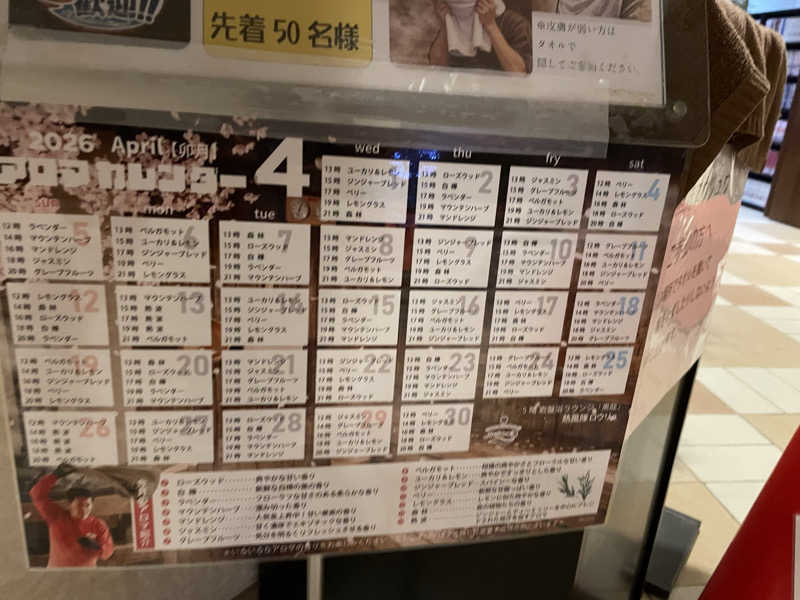 歓迎!!
先着50名様
※皮膚が弱い方は
タオルで
隠してご参加ください。
2026 April (卯月) 4
アロマカレンダー
wed thu fry sat
sun mon tue
1
13時 ユーカリ&レモン
15時 ジンジャーブレッド
17時 ベリー
19時 レモングラス
21時 森林
2
13時 ローズウッド
15時 白樺
17時 ラベンダー
19時 マウンテンハーブ
21時 マンドレンジ
3
13時 ジャスミン
15時 グレープフルーツ
17時 ベルガモット
19時 ユーカリ&レモン
21時 ジンジャーブレッド
4
12時 ベリー
14時 レモングラス
16時 森林
18時 ローズウッド
20時 白樺
5
12時 ラベンダー
14時 マウンテンハーブ
16時 マンドレンジ
18時 ジャスミン
20時 グレープフルーツ
6
13時 ベルガモット
15時 ユーカリ&レモン
17時 ジンジャーブレッド
19時 ベリー
21時 レモングラス
7
13時 森林
15時 ローズウッド
17時 白樺
19時 ラベンダー
21時 マウンテンハーブ
8
13時 マンドレンジ
15時 ジャスミン
17時 グレープフルーツ
19時 ベルガモット
21時 ユーカリ&レモン
9
13時 ジンジャーブレッド
15時 ベリー
17時 レモングラス
19時 森林
21時 ローズウッド
10
13時 白樺
15時 ラベンダー
17時 マウンテンハーブ
19時 マンドレンジ
21時 ジャスミン
11
12時 グレープフルーツ
14時 ベルガモット
16時 ユーカリ&レモン
18時 ジンジャーブレッド
20時 ベリー
12
12時 レモングラス
14時 森林
16時 ローズウッド
18時 白樺
20時 ラベンダー
13
13時 マウンテンハーブ
15時 熱波
17時 熱波
19時 熱波
21時 マンドレンジ
14
13時 ユーカリ&レモン
15時 ジンジャーブレッド
17時 ベリー
19時 レモングラス
21時 森林
15
13時 ローズウッド
15時 白樺
17時 ラベンダー
19時 マウンテンハーブ
21時 マンドレンジ
16
13時 ジャスミン
15時 グレープフルーツ
17時 ベルガモット
19時 ユーカリ&レモン
21時 ジンジャーブレッド
17
13時 ベリー
15時 レモングラス
17時 森林
19時 ローズウッド
21時 白樺
18
12時 ラベンダー
14時 マウンテンハーブ
16時 マンドレンジ
18時 ジャスミン
20時 グレープフルーツ
19
12時 ベルガモット
14時 ユーカリ&レモン
16時 ジンジャーブレッド
18時 ベリー
20時 レモングラス
20
13時 森林
15時 ローズウッド
17時 白樺
19時 ラベンダー
21時 マウンテンハーブ
21
13時 マンドレンジ
15時 ジャスミン
17時 グレープフルーツ
19時 ベルガモット
21時 ユーカリ&レモン
22
13時 ジンジャーブレッド
15時 ベリー
17時 レモングラス
19時 森林
21時 ローズウッド
23
13時 白樺
15時 ラベンダー
17時 マウンテンハーブ
19時 マンドレンジ
21時 ジャスミン
24
13時 グレープフルーツ
15時 ベルガモット
17時 ユーカリ&レモン
19時 ジンジャーブレッド
21時 ベリー
25
12時 レモングラス
14時 森林
16時 ローズウッド
18時 白樺
20時 ラベンダー
26
12時 マウンテンハーブ
14時 熱波
16時 熱波
18時 熱波
20時 ベルガモット
27
13時 ユーカリ&レモン
15時 ジンジャーブレッド
17時 ベリー
19時 レモングラス
21時 森林
28
13時 ローズウッド
15時 白樺
17時 ラベンダー
19時 マウンテンハーブ
21時 マンドレンジ
29
13時 ジャスミン
15時 グレープフルーツ
17時 ベルガモット
19時 ユーカリ&レモン
21時 ジンジャーブレッド
30
13時 ベリー
15時 レモングラス
17時 森林
19時 ローズウッド
21時 白樺
5F 岩盤浴ラウンジ
熱風爆ロウリュ
ローズウッド 爽やかな甘い香り
白樺 新鮮な白樺の葉の香り
ラベンダー フローラルな甘さのある柔らかな香り
マウンテンハーブ 澄み切った香り
マンドレンジ 人気急上昇中!甘い果実の香り
ジャスミン 甘く濃厚でエキゾチックな香り
グレープフルーツ 気分を明るくリフレッシュさせる香り
ベルガモット 柑橘の爽やかさとフローラルな甘い香り
ユーカリ&レモン
ジンジャーブレッド スパイシーな香り
ベリー 新鮮な甘酸っぱい香り
レモングラス レモンに似た爽やかな香り
森林
熱波